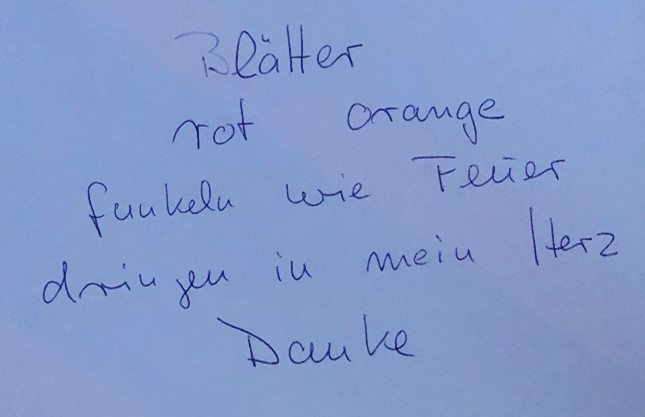 Blätter
rot orange
funkeln wie Feuer
dringen in mein Herz
Danke